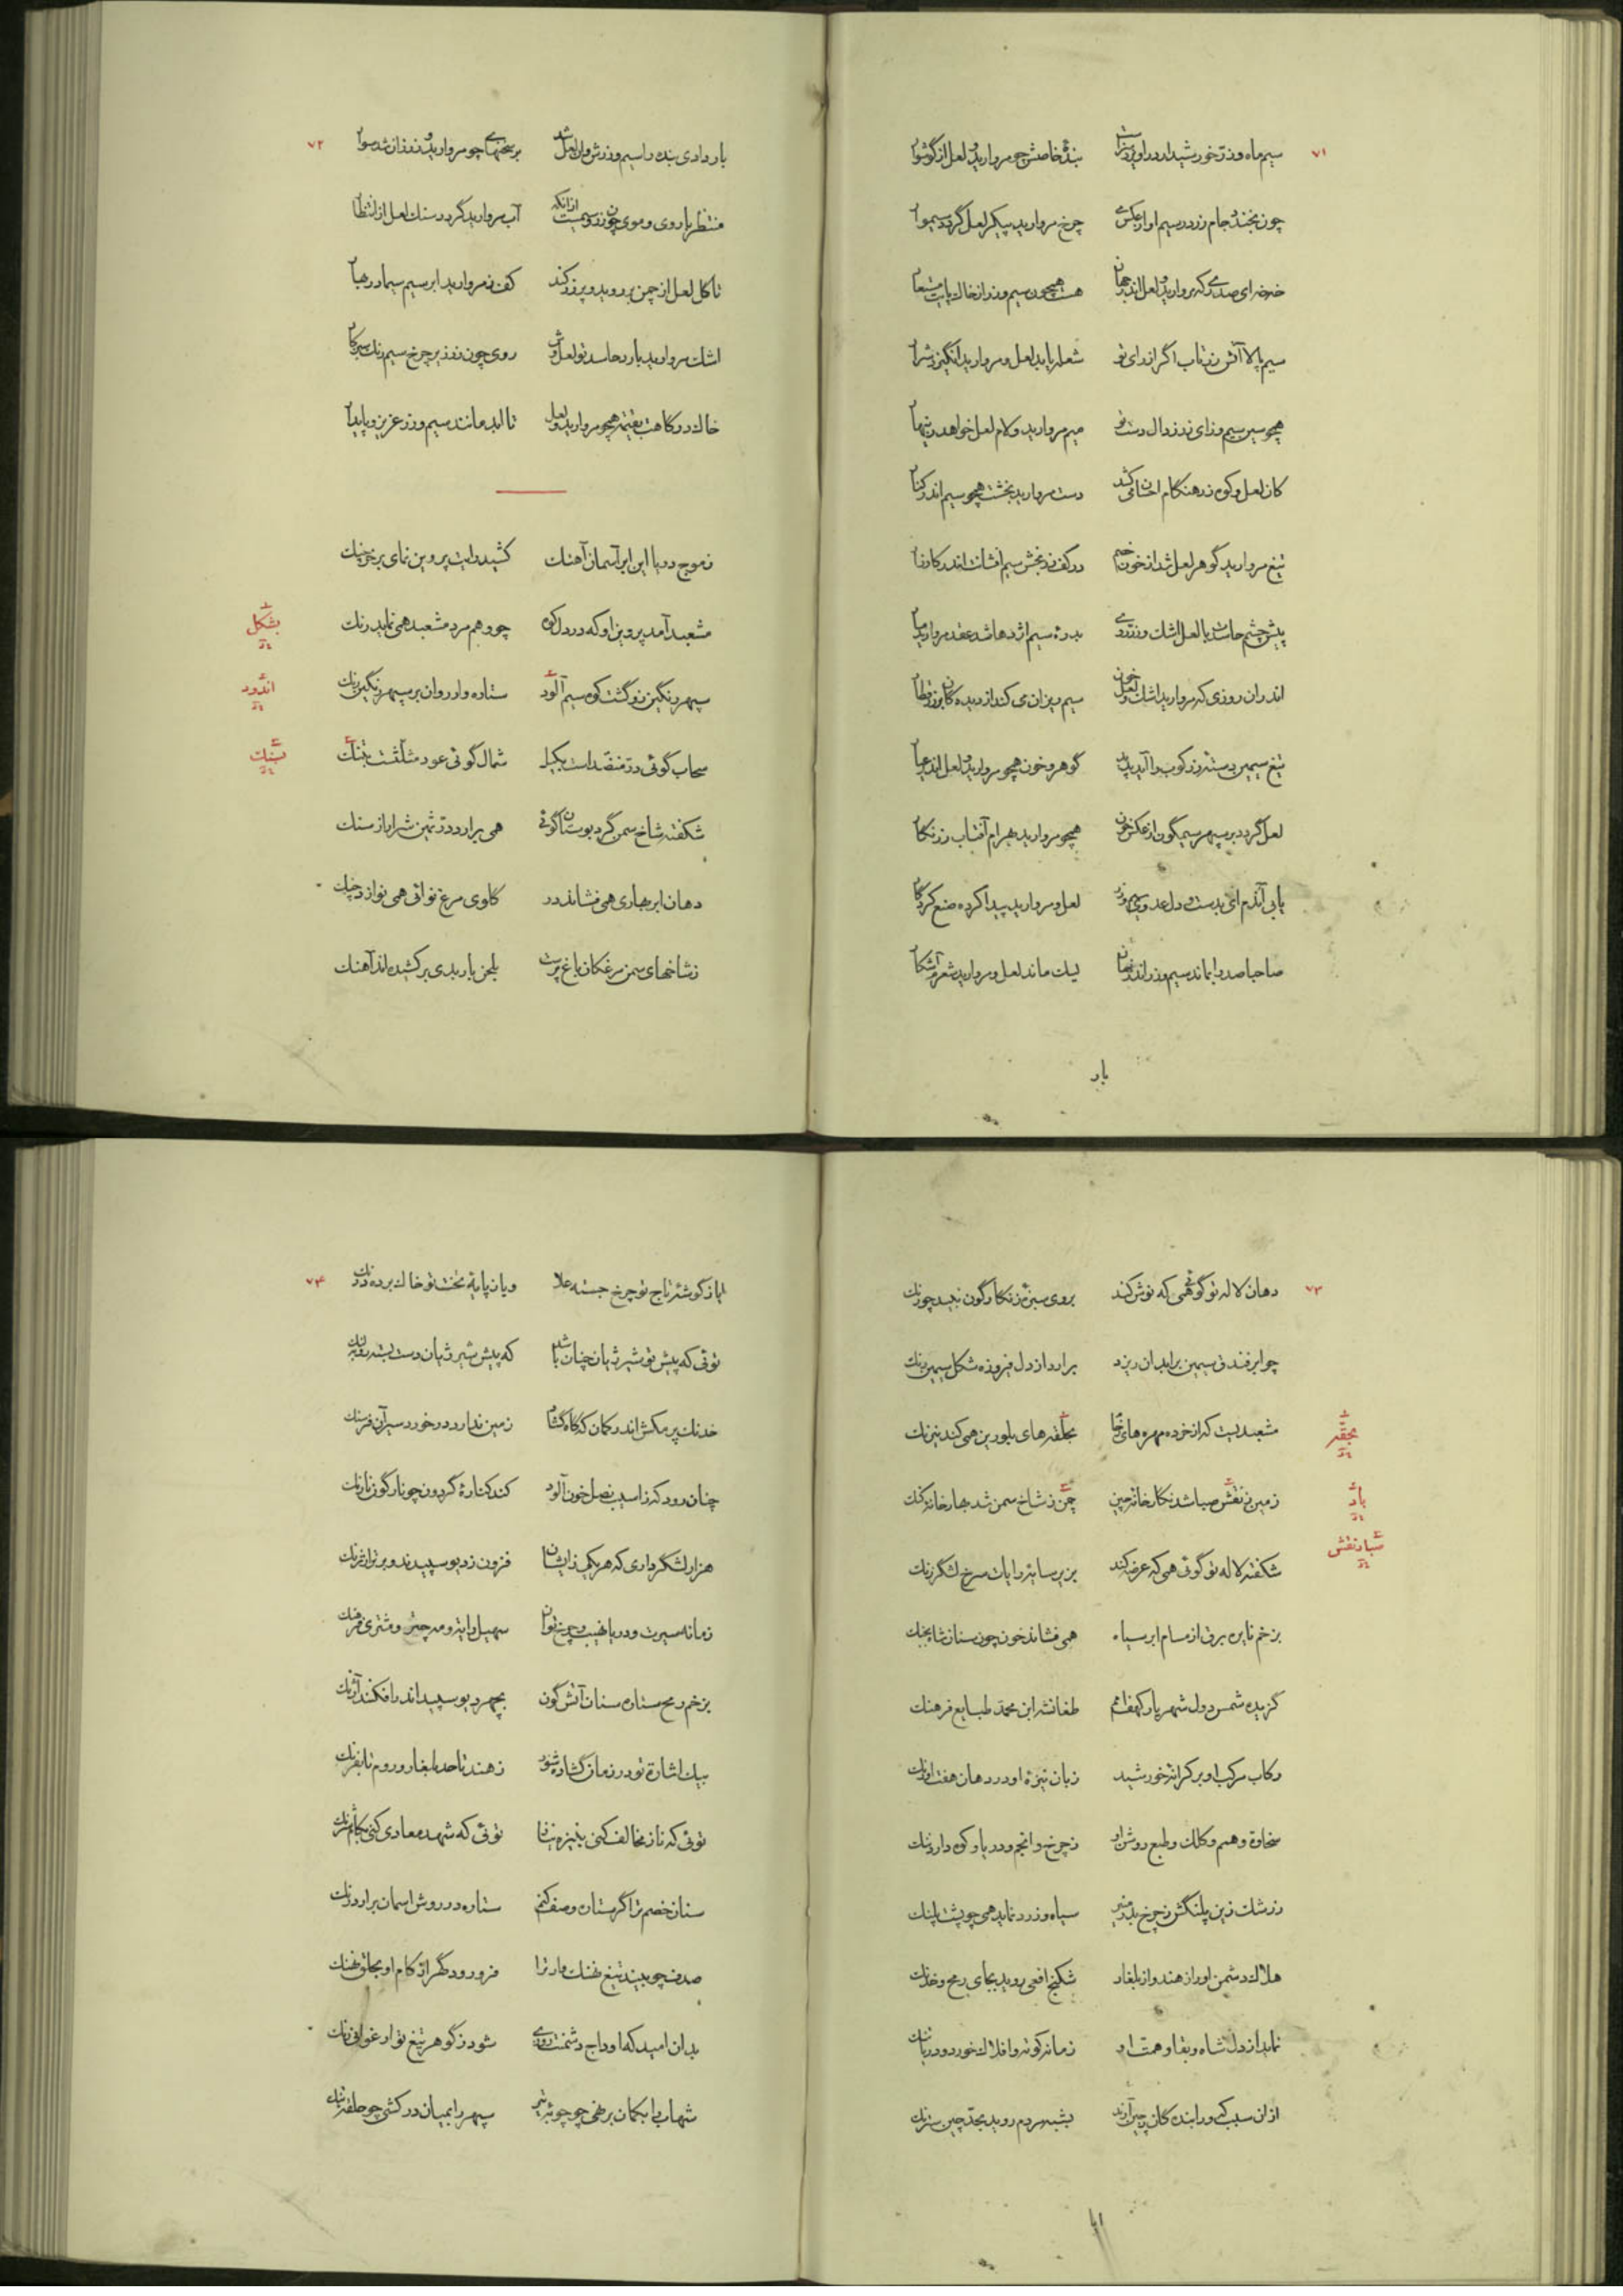 ۷۱
سیم ماه و زر خورشید از در او
بندهٔ خاصش چو مروارید و لعل از گوشوار
چون بخندد جام زر در سیم او از عکس می
چرخ مروارید پیکر لعل گردد
همچون سیم و زر از خاک پایت مستعار
سیم پالا آتش زر تاب اگر از رای تو
شعله یابد لعل و مروارید انگیزد شرار
همچو سین سیم و زای زر ز دال دست تو
میم مروارید و لام لعل خواهد زینهار
کان لعل و کوه زر هنگام احسان می کشد
دست مروارید بخشت همچو سیم اندر کنار
تیغ مروارید گوهر لعل شد از خون خصم
در کف زر بخش سیم افشانت اندر کارزار
پیش چشم حاسدت با لعل اشک و زر روی
بدرهٔ سیم اژدها شد عقد مروارید مار
اندران روزی که مروارید اشک و لعل خون
سیم ریزان می کند از دیده
تیغ سیمین دسته زر کوب را آید پدید
گوهر و خون همچو مروارید و لعل اندر عیار
لعل گردد بر سپهر سیمگون از عکس خون
همچو مروارید بهرام آفتاب زرنگار
لعل و مروارید پیدا کرده صنع کردگار
صاحبا صدرا نماند سیم و زر اندر جهان
لیک ماند لعل و مروارید شعرم آشکار
بار
۷۲
بار دادی بنده را سیم و زرش دادن لعل شد
بر سخنهای چو مروارید و زر زان شد سوار
منتظر با روی و موی چون زر و سیمست ازانکه
آب مروارید گردد سنگ لعل از انتظار
تا گل لعل از چمن بر روید و پر زر کند
کف ز مروارید ابر سیم سیما در بهار
اشک مروارید بارد حاسد تو لعل وش
روی چون زر زیر چرخ سیم رنگ
خاک درگاهت بقیمت همچو مروارید و لعل
تا ابد مانند سیم و زر عزیز و پایدار
ز موج دریا این ابر آسمان آهنگ
کشید رایت پروین نمای بر خرچنگ
مشعبد آمد پروین او که در دل کوه
چو وهم مرد مشعبد همی نماید رنگ
بشکل
سپهر رنگین زو گشت کوه سیم آلود
ستاره وار روان بر سپهر رنگین رنگ
اندود
سحاب گوئی در منضدست بکیل
شمال گوئی عود مثلثست بتنگ
بسنگ
شکفته شاخ سمن گرد بوستان گوئی
همی برارد در ثمین شرار از سنگ
دهان ابر بهاری همی فشاند در
گلوی مرغ نوائی همی نوازد چنگ
ز شاخهای سمن مرغکان باغ پرست
بلحن باربدی بر کشیده اند آهنگ
۷۳
دهان لاله تو گوئی همی که نوش کند
بروی سبزهٔ زنگارگون نبید چو زنگ
چو ابر فندق سیمین بر آبدان ریزد
برارد از دل فیروزه شکل سیمین رنگ
مشعبدیست که از خرده مهره های رخام
بحقه های بلورین همی کند نیرنگ
بحقه
زمین ز نقش صبا شد نگارخانهٔ چین
چمن ز شاخ سمن شد بهارخانه گنگ
باد
صبا نقش
شکفته لاله تو گوئی همی که عرضه کند
بزیر سایهٔ رایات سرخ لشگر زنگ
بزخم نایره برق از مسام ابر سیاه
همی فشاند خون چون سنان شاه بجنگ
گزیده شمس دول شهریار کهف امم
طغانشه ابن محمد طبایع فرهنگ
رکاب مرکب او بر کرانهٔ خورشید
زبان نیزهٔ او در دهان هفت اورنگ
سخاوة و هم و کلک و طبع روشن او
ز چرخ و انجم و دریا و کوه دارد ننگ
ز رشک زین پلنگش ز چرخ بدر منیر
سیاه و زرد نماید همی چو پشت پلنگ
هلاک دشمن او را ز هند و از بلغار
شکنج افعی روید بجای رمح و خدنگ
نماید از دل شاه و بقا و همت او
زمانه کوته و افلاک خورد و دریا تنگ
بشبه مردم روید بحد چین سترنگ
ایا
۷۴
ایا ز گوشهٔ تاج تو چرخ جسته علا
و یا ز پایهٔ تخت تو خاک برده درنگ
توئی که پیش تو شیر ژیان چنان باشد
که پیش شیر ژیان دست بسته روبه لنگ
خدنگ پر مکش اندر کمان که گاه گشاد
زمین ندارد در خورد سیر آن فرسنگ
چنان رود که ز آسیب نصل خون آلود
کند کنارهٔ گردون چو نارگون نارنگ
هزار لشگر داری که هر یکی زایشان
فزون ز دیو سپیدند و برتر از ارژنگ
زمانه سیرت و دریا نهیب و چرخ توان
سهیل رایت و مه چتر و مشتری فرهنگ
بزخم رمح ستاره سنان آتش گون
بچهر دیو سپید اندر افکنند آژنگ
بیک اشارة تو در زمان گشاده شود
ز هند تا حد بلغار و روم تا بفرنگ
توئی که ناز مخالف کنی بنیزه نیاز
توئی که شهد معادی کنی بکام شرنگ
سنان خصم ترا گر ستاره وصف کنم
ستاره در روش آسمان برارد زنگ
صدف چو بیند تیغ نهنگ وار ترا
فرو رود گهر از کام او بحلق نهنگ
بدان امید که اوداج دشمنت روزی
شود ز گوهر تیغ تو ارغوانی رنگ
شهاب را بکمان برنهی چو چوبهٔ تیر
سپهر را بمیان در کشی چو حلقهٔ تنگ